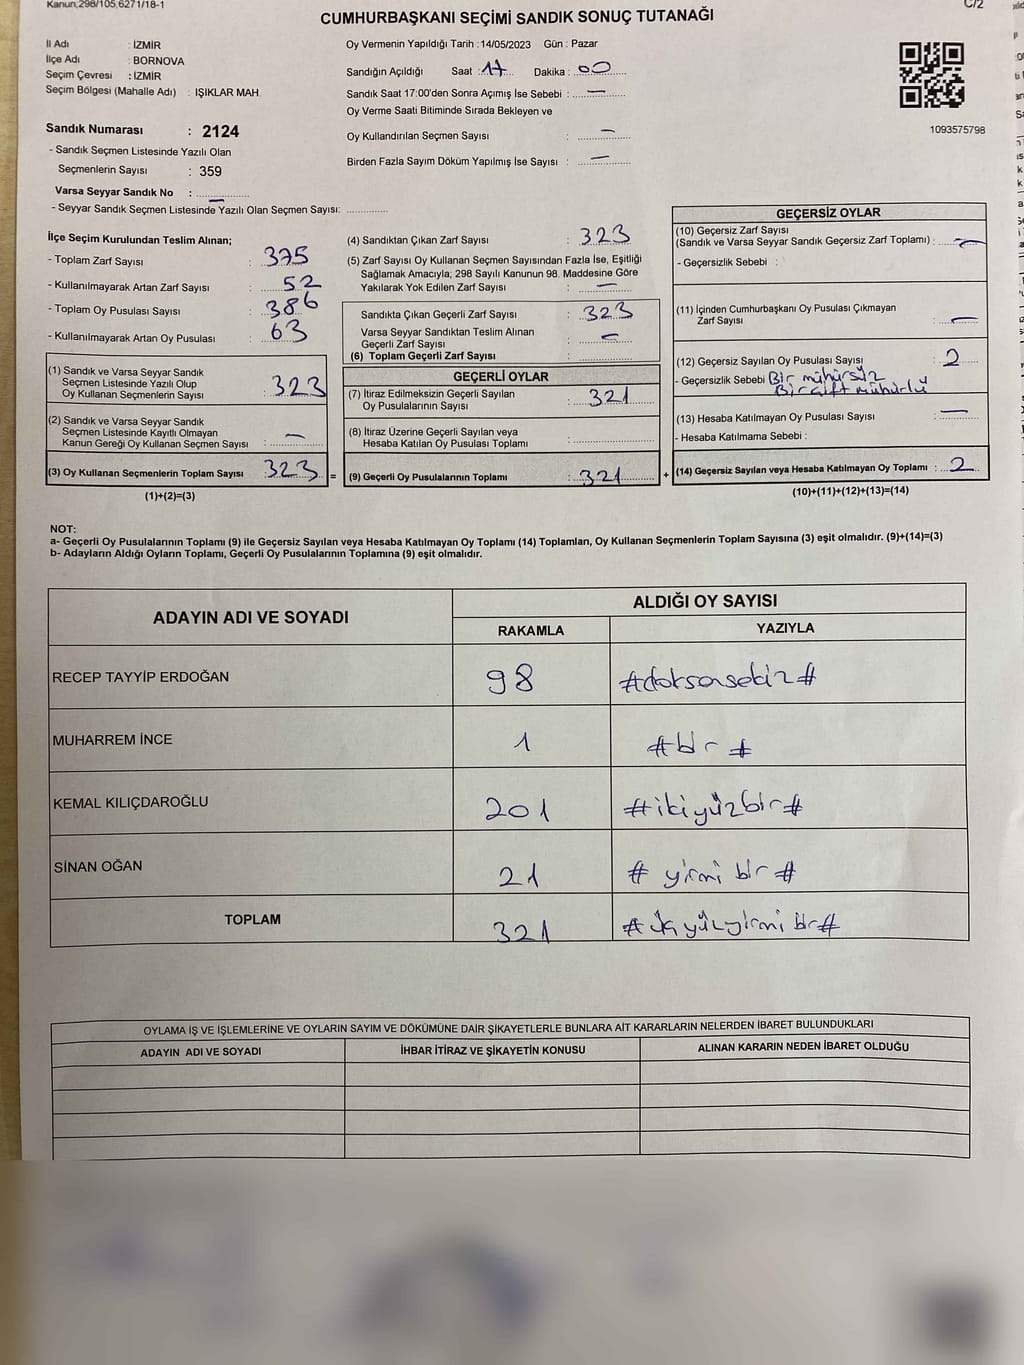 Kanun;298/105,6271/18-1
C/2
CUMHURBAŞKANI SEÇİMİ SANDIK SONUÇ TUTANAĞI
İl Adı : İZMİR
İlçe Adı : BORNOVA
Seçim Çevresi : İZMİR
Seçim Bölgesi (Mahalle Adı) : IŞIKLAR MAH.
Sandık Numarası : 2124
- Sandık Seçmen Listesinde Yazılı Olan
Seçmenlerin Sayısı : 359
Varsa Seyyar Sandık No : —
- Seyyar Sandık Seçmen Listesinde Yazılı Olan Seçmen Sayısı: ..............
Oy Vermenin Yapıldığı Tarih : 14/05/2023 Gün : Pazar
Sandığın Açıldığı Saat : 17 Dakika : 00
Sandık Saat 17:00'den Sonra Açımış İse Sebebi : —
Oy Verme Saati Bitiminde Sırada Bekleyen ve
Oy Kullandırılan Seçmen Sayısı : —
Birden Fazla Sayım Döküm Yapılmış İse Sayısı : —
1093575798
İlçe Seçim Kurulundan Teslim Alınan;
- Toplam Zarf Sayısı : 375
- Kullanılmayarak Artan Zarf Sayısı : 52
- Toplam Oy Pusulası Sayısı : 386
- Kullanılmayarak Artan Oy Pusulası : 63
(1) Sandık ve Varsa Seyyar Sandık
Seçmen Listesinde Yazılı Olup
Oy Kullanan Seçmenlerin Sayısı : 323
(2) Sandık ve Varsa Seyyar Sandık
Seçmen Listesinde Kayıtlı Olmayan
Kanun Gereği Oy Kullanan Seçmen Sayısı : —
(3) Oy Kullanan Seçmenlerin Toplam Sayısı : 323 =
(1)+(2)=(3)
(4) Sandıktan Çıkan Zarf Sayısı : 323
(5) Zarf Sayısı Oy Kullanan Seçmen Sayısından Fazla İse, Eşitliği
Sağlamak Amacıyla; 298 Sayılı Kanunun 98. Maddesine Göre
Yakılarak Yok Edilen Zarf Sayısı : —
Sandıkta Çıkan Geçerli Zarf Sayısı : 323
Varsa Seyyar Sandıktan Teslim Alınan
Geçerli Zarf Sayısı : —
(6) Toplam Geçerli Zarf Sayısı : ..............
GEÇERLİ OYLAR
(7) İtiraz Edilmeksizin Geçerli Sayılan
Oy Pusulalarının Sayısı : 321
(8) İtiraz Üzerine Geçerli Sayılan veya
Hesaba Katılan Oy Pusulası Toplamı : ..............
(9) Geçerli Oy Pusulalarının Toplamı : 321 +
GEÇERSİZ OYLAR
(10) Geçersiz Zarf Sayısı
(Sandık ve Varsa Seyyar Sandık Geçersiz Zarf Toplamı) : —
- Geçersizlik Sebebi :
(11) İçinden Cumhurbaşkanı Oy Pusulası Çıkmayan
Zarf Sayısı : —
(12) Geçersiz Sayılan Oy Pusulası Sayısı : 2
- Geçersizlik Sebebi Bir mühürsüz
Bir çift mühürlü
(13) Hesaba Katılmayan Oy Pusulası Sayısı : —
- Hesaba Katılmama Sebebi :
(14) Geçersiz Sayılan veya Hesaba Katılmayan Oy Toplamı : 2
(10)+(11)+(12)+(13)=(14)
NOT:
a- Geçerli Oy Pusulalarının Toplamı (9) ile Geçersiz Sayılan veya Hesaba Katılmayan Oy Toplamı (14) Toplamları, Oy Kullanan Seçmenlerin Toplam Sayısına (3) eşit olmalıdır. (9)+(14)=(3)
b- Adayların Aldığı Oyların Toplamı, Geçerli Oy Pusulalarının Toplamına (9) eşit olmalıdır.
ADAYIN ADI VE SOYADI
ALDIĞI OY SAYISI
RAKAMLA YAZIYLA
RECEP TAYYİP ERDOĞAN 98 #doksansekiz#
MUHARREM İNCE 1 #bir#
KEMAL KILIÇDAROĞLU 201 #ikiyüzbir#
SİNAN OĞAN 21 # yirmi bir #
TOPLAM 321 #üçyüzyirmi bir#
OYLAMA İŞ VE İŞLEMLERİNE VE OYLARIN SAYIM VE DÖKÜMÜNE DAİR ŞİKAYETLERLE BUNLARA AİT KARARLARIN NELERDEN İBARET BULUNDUKLARI
ADAYIN ADI VE SOYADI İHBAR İTİRAZ VE ŞİKAYETİN KONUSU ALINAN KARARIN NEDEN İBARET OLDUĞU